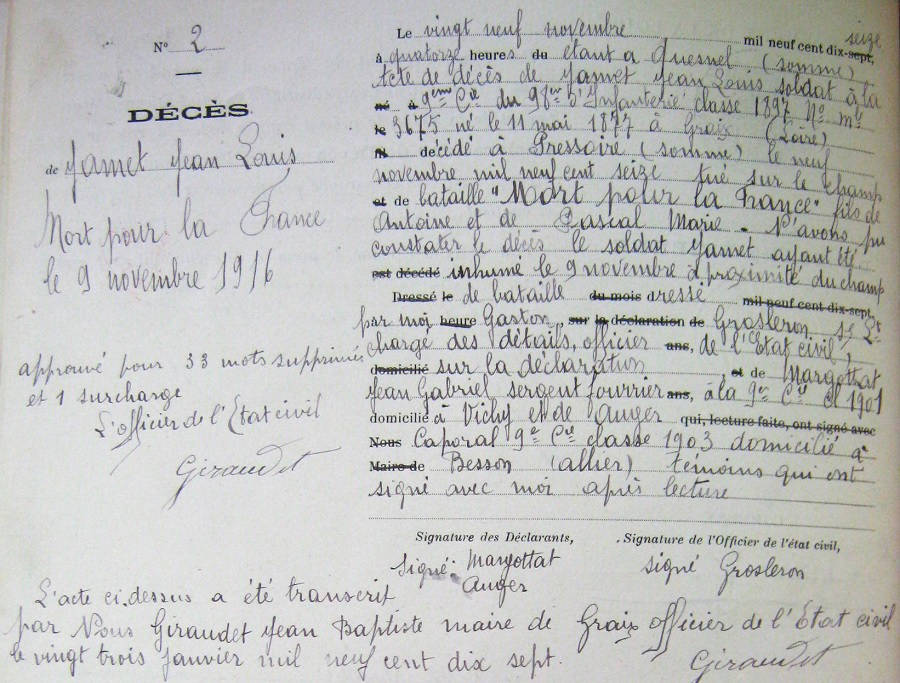 N° 2
DÉCÈS
de Jamet Jean Louis
Mort pour la France
le 9 novembre 1916
approuvé pour 33 mots supprimés
et 1 surcharge
L'officier de l'Etat civil
Giraudet
Le vingt neuf novembre mil neuf cent dix-sept, seize
à quatorze heures du étant a Quesnel (somme)
Acte de décès de Jamet Jean Louis soldat à la
né à 9eme Cie du 98me d'Infanterie classe 1897 No mle
le 3675 né le 11 mai 1877 à Graix (Loire)
décédé à Pressoire (somme) le neuf
novembre mil neuf cent seize tué sur le champ
et de bataille "Mort pour la France" fils de
Antoine et de Pascal Marie - N'avons pu
constater le décès le soldat Jamet ayant été
est décédé inhumé le 9 novembre à proximité du champ
Dressé le de bataille du mois dresse mil neuf cent dix-sept,
par moi heure Gaston, sur la déclaration de Grosleron s/ Lt
chargé des détails, officier ans, de l'Etat civil,
domicilié sur la déclaration, et de Margottat
Jean Gabriel sergent fourrier ans, à la 9e Cie cl 1901
domicilié à Vichy et de Auger qui, lecture faite, ont signé avec
Nous Caporal 9e Cie classe 1903 domicilié à
Maire de Besson (allier) témoins qui ont
signé avec moi après lecture
Signature des Déclarants,
Signé: Margottat
Auger
Signature de l'Officier de l'état civil,
signé Grosleron
L'acte ci-dessus a été transcrit
par Nous Giraudet Jean Baptiste maire de Graix officier de l'Etat civil
le vingt trois janvier mil neuf cent dix sept.
Giraudet